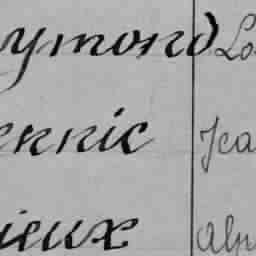 ymond Lo
ennic Jea
ieux Alp